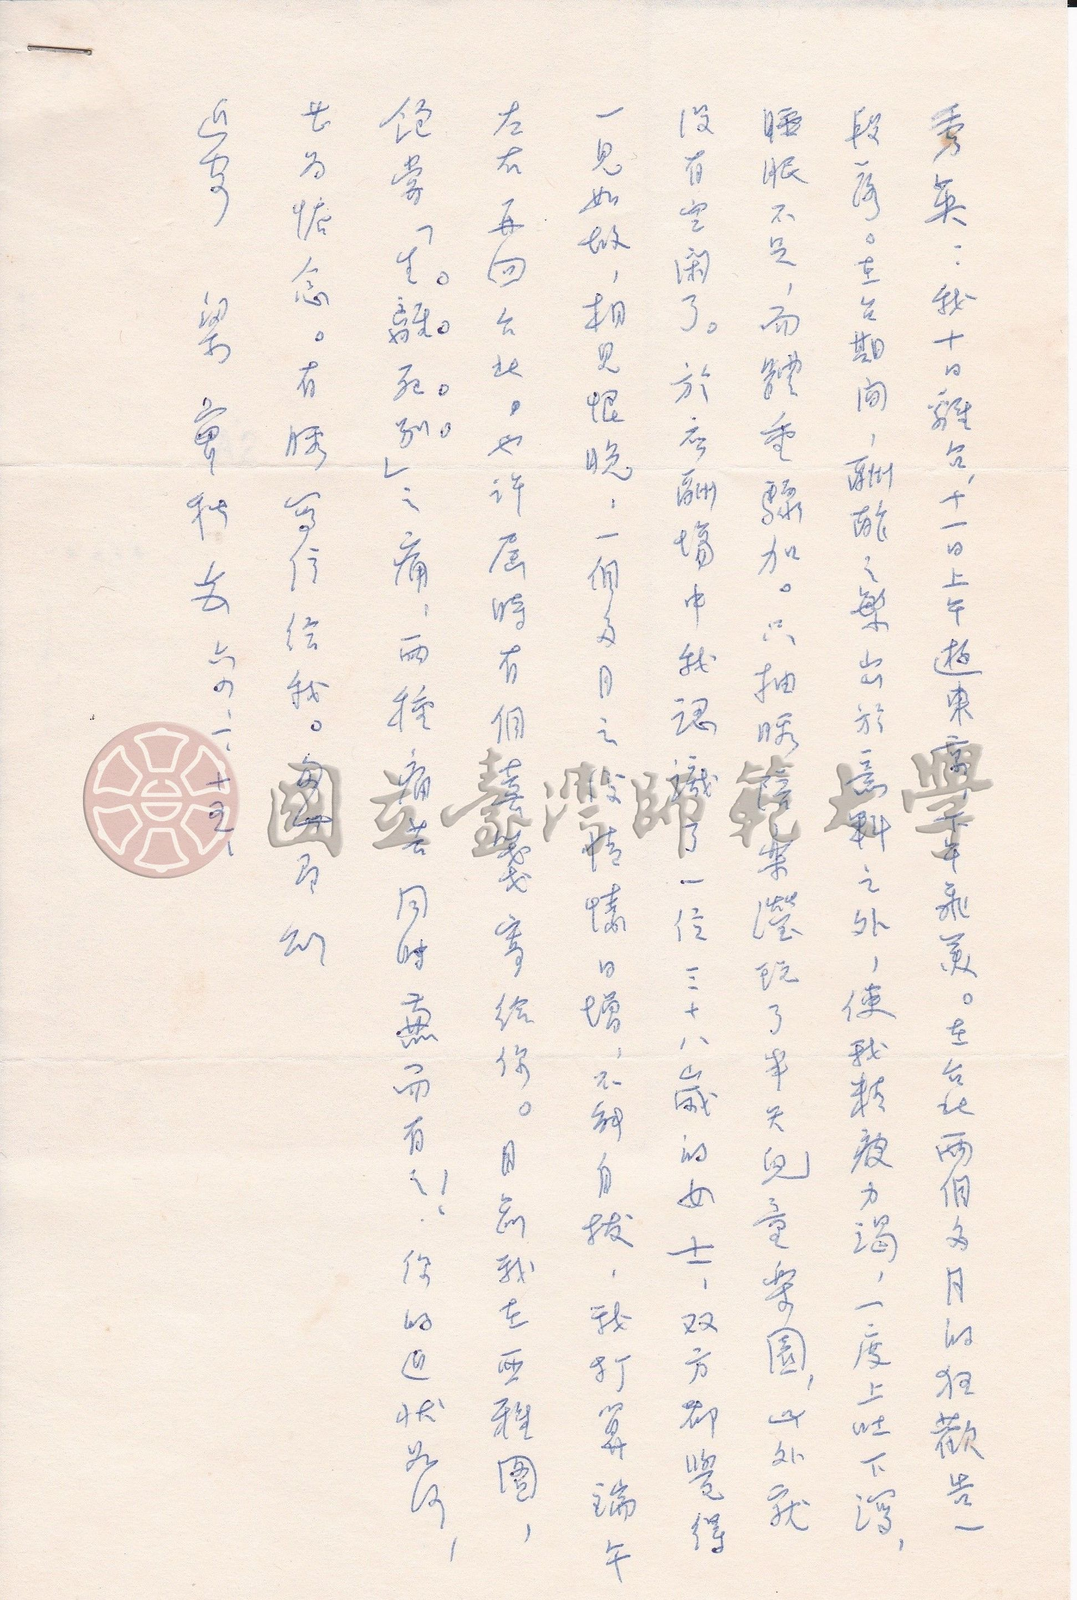 秀英：我十日離台，十一日上午遊東京，下午飛美。在台北兩個多月的狂歡告一
段落。在台期间，酬酢之繁出於意料之外，使我精疲力竭，一度上吐下瀉，
睡眠不足，而體重驟加。只抽暇陪樂瀅玩了半天兒童樂園，此外就
沒有空閑了。於应酬場中我認識了一位三十八歲的女士，双方都覺得
一見如故，相見恨晚，一個多月之後情愫日增，不能自拔，我打算端午
左右再回台北，也许屆時有個喜柬寄给你。目前我在西雅圖，
飽嘗「生離死別」之痛，两種痛苦同時兼而有之！你的近狀如何，
甚为惦念。有暇寫信给我。匆此即頌
近安　梁實秋 六四、一、十五、
國立臺灣師範大學